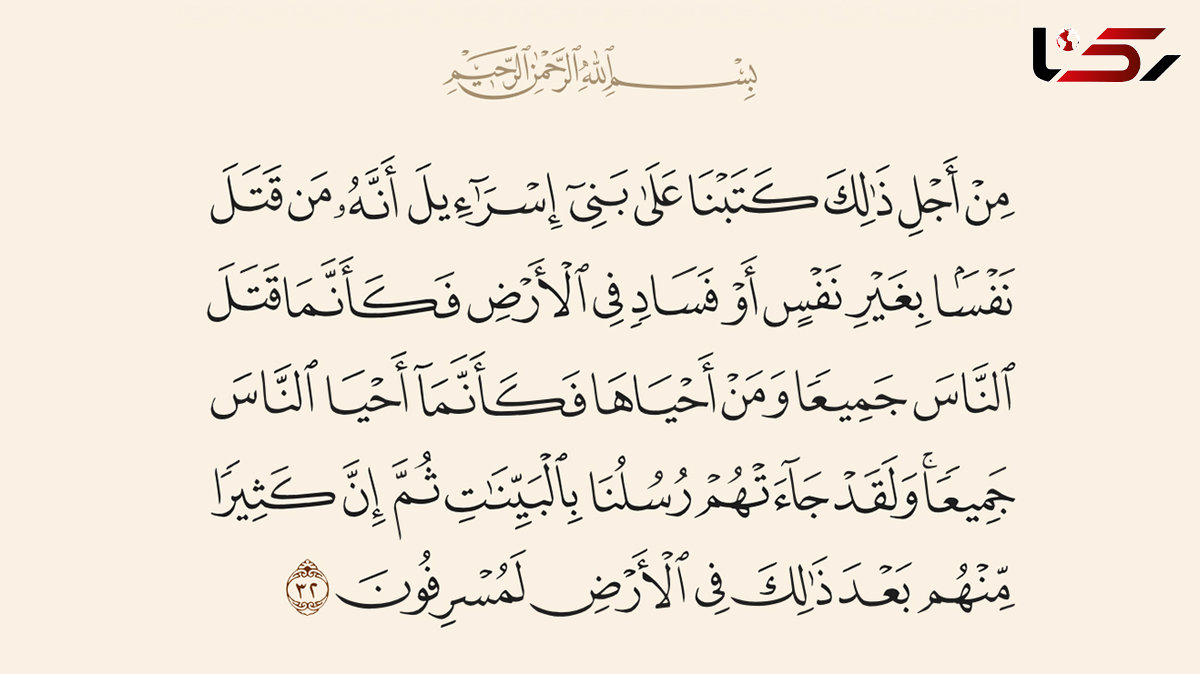 رکنا
بِسْمِ ٱللَّهِ ٱلرَّحْمَٰنِ ٱلرَّحِيمِ
مِنْ أَجْلِ ذَٰلِكَ كَتَبْنَا عَلَىٰ بَنِىٓ إِسْرَـٰٓءِيلَ أَنَّهُۥ مَن قَتَلَ
نَفْسًۢا بِغَيْرِ نَفْسٍ أَوْ فَسَادٍ فِى ٱلْأَرْضِ فَكَأَنَّمَا قَتَلَ
ٱلنَّاسَ جَمِيعًا وَمَنْ أَحْيَاهَا فَكَأَنَّمَآ أَحْيَا ٱلنَّاسَ
جَمِيعًا ۚ وَلَقَدْ جَآءَتْهُمْ رُسُلُنَا بِٱلْبَيِّنَـٰتِ ثُمَّ إِنَّ كَثِيرًا
مِّنْهُم بَعْدَ ذَٰلِكَ فِى ٱلْأَرْضِ لَمُسْرِفُونَ ٣٢